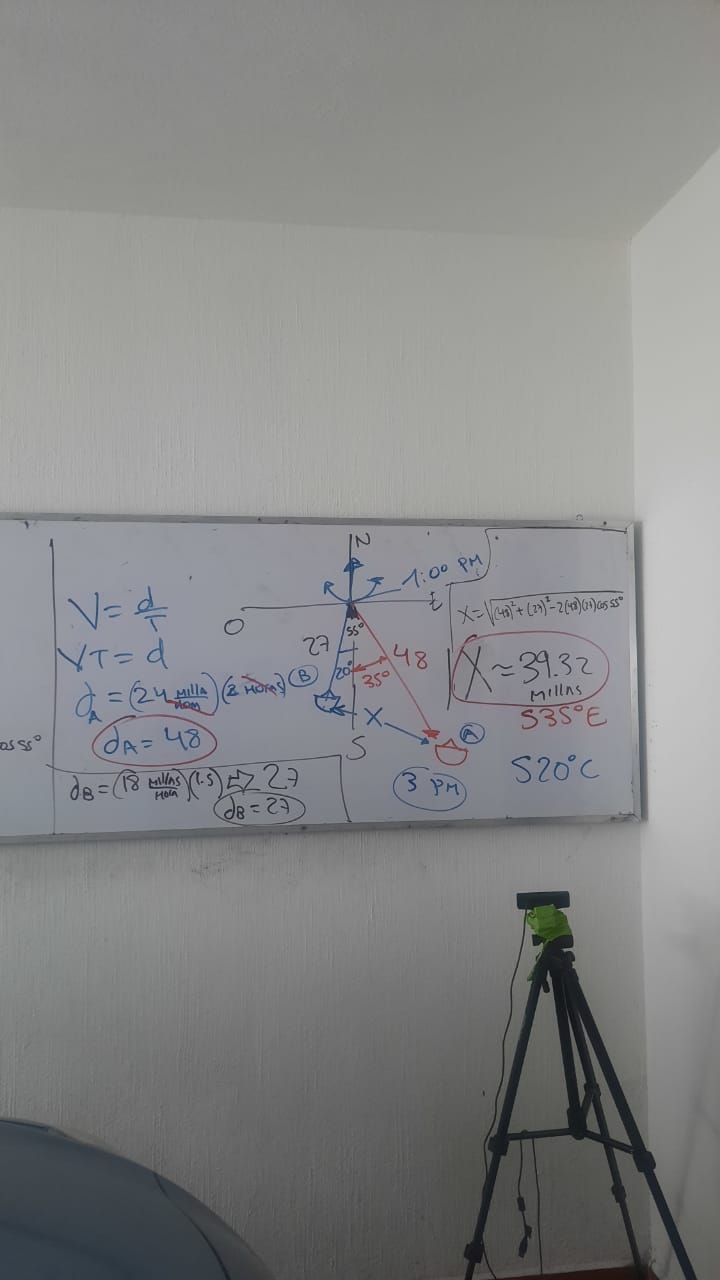 cos 55°
V = d/T
VT = d
dA = (24 MILLA/HORA)(2 HORAS)
dA = 48
dB = (18 MILLAS/HORA)(1.5) ⇒ 27
dB = 27
N
1:00 PM
O
E
55°
27
48
20°
35°
B
X
A
S
3 PM
X = √(48)² + (27)² - 2(48)(27) cos 55°
X ≈ 39.32
MILLAS
S35°E
S20°C